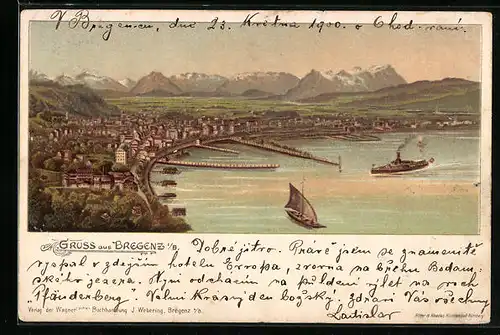 V Bregenzu, dne 23. Května 1900. o 6 hod. ranní.
GRUSS aus BREGENZ a/B.
Dobré jitro. Právě jsem se znamenitě
vyspal v zdejším hotelu Evropa, zrovna na břehu Bodam-
ského jezera. Nyní odcházím na půldení výlet na vrch
"Pfänderberg". Velmi krásný den božský, zdraví Vás všechny
Ladislav
Verlag der Wagner'schen Buchhandlung J. Webering, Bregenz a/B.